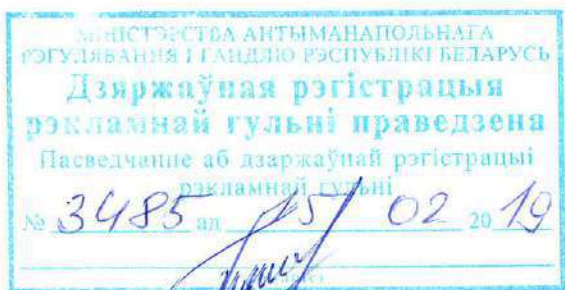 МІНІСТЭРСТВА АНТЫМАНАПОЛЬНАГА
РЭГУЛЯВАННЯ І ГАНДЛЮ РЭСПУБЛІКІ БЕЛАРУСЬ
Дзяржаўная рэгістрацыя
рэкламнай гульні праведзена
Пасведчанне аб дзяржаўнай рэгістрацыі
рэкламнай гульні
№ 3485 ад 15 02 20 19